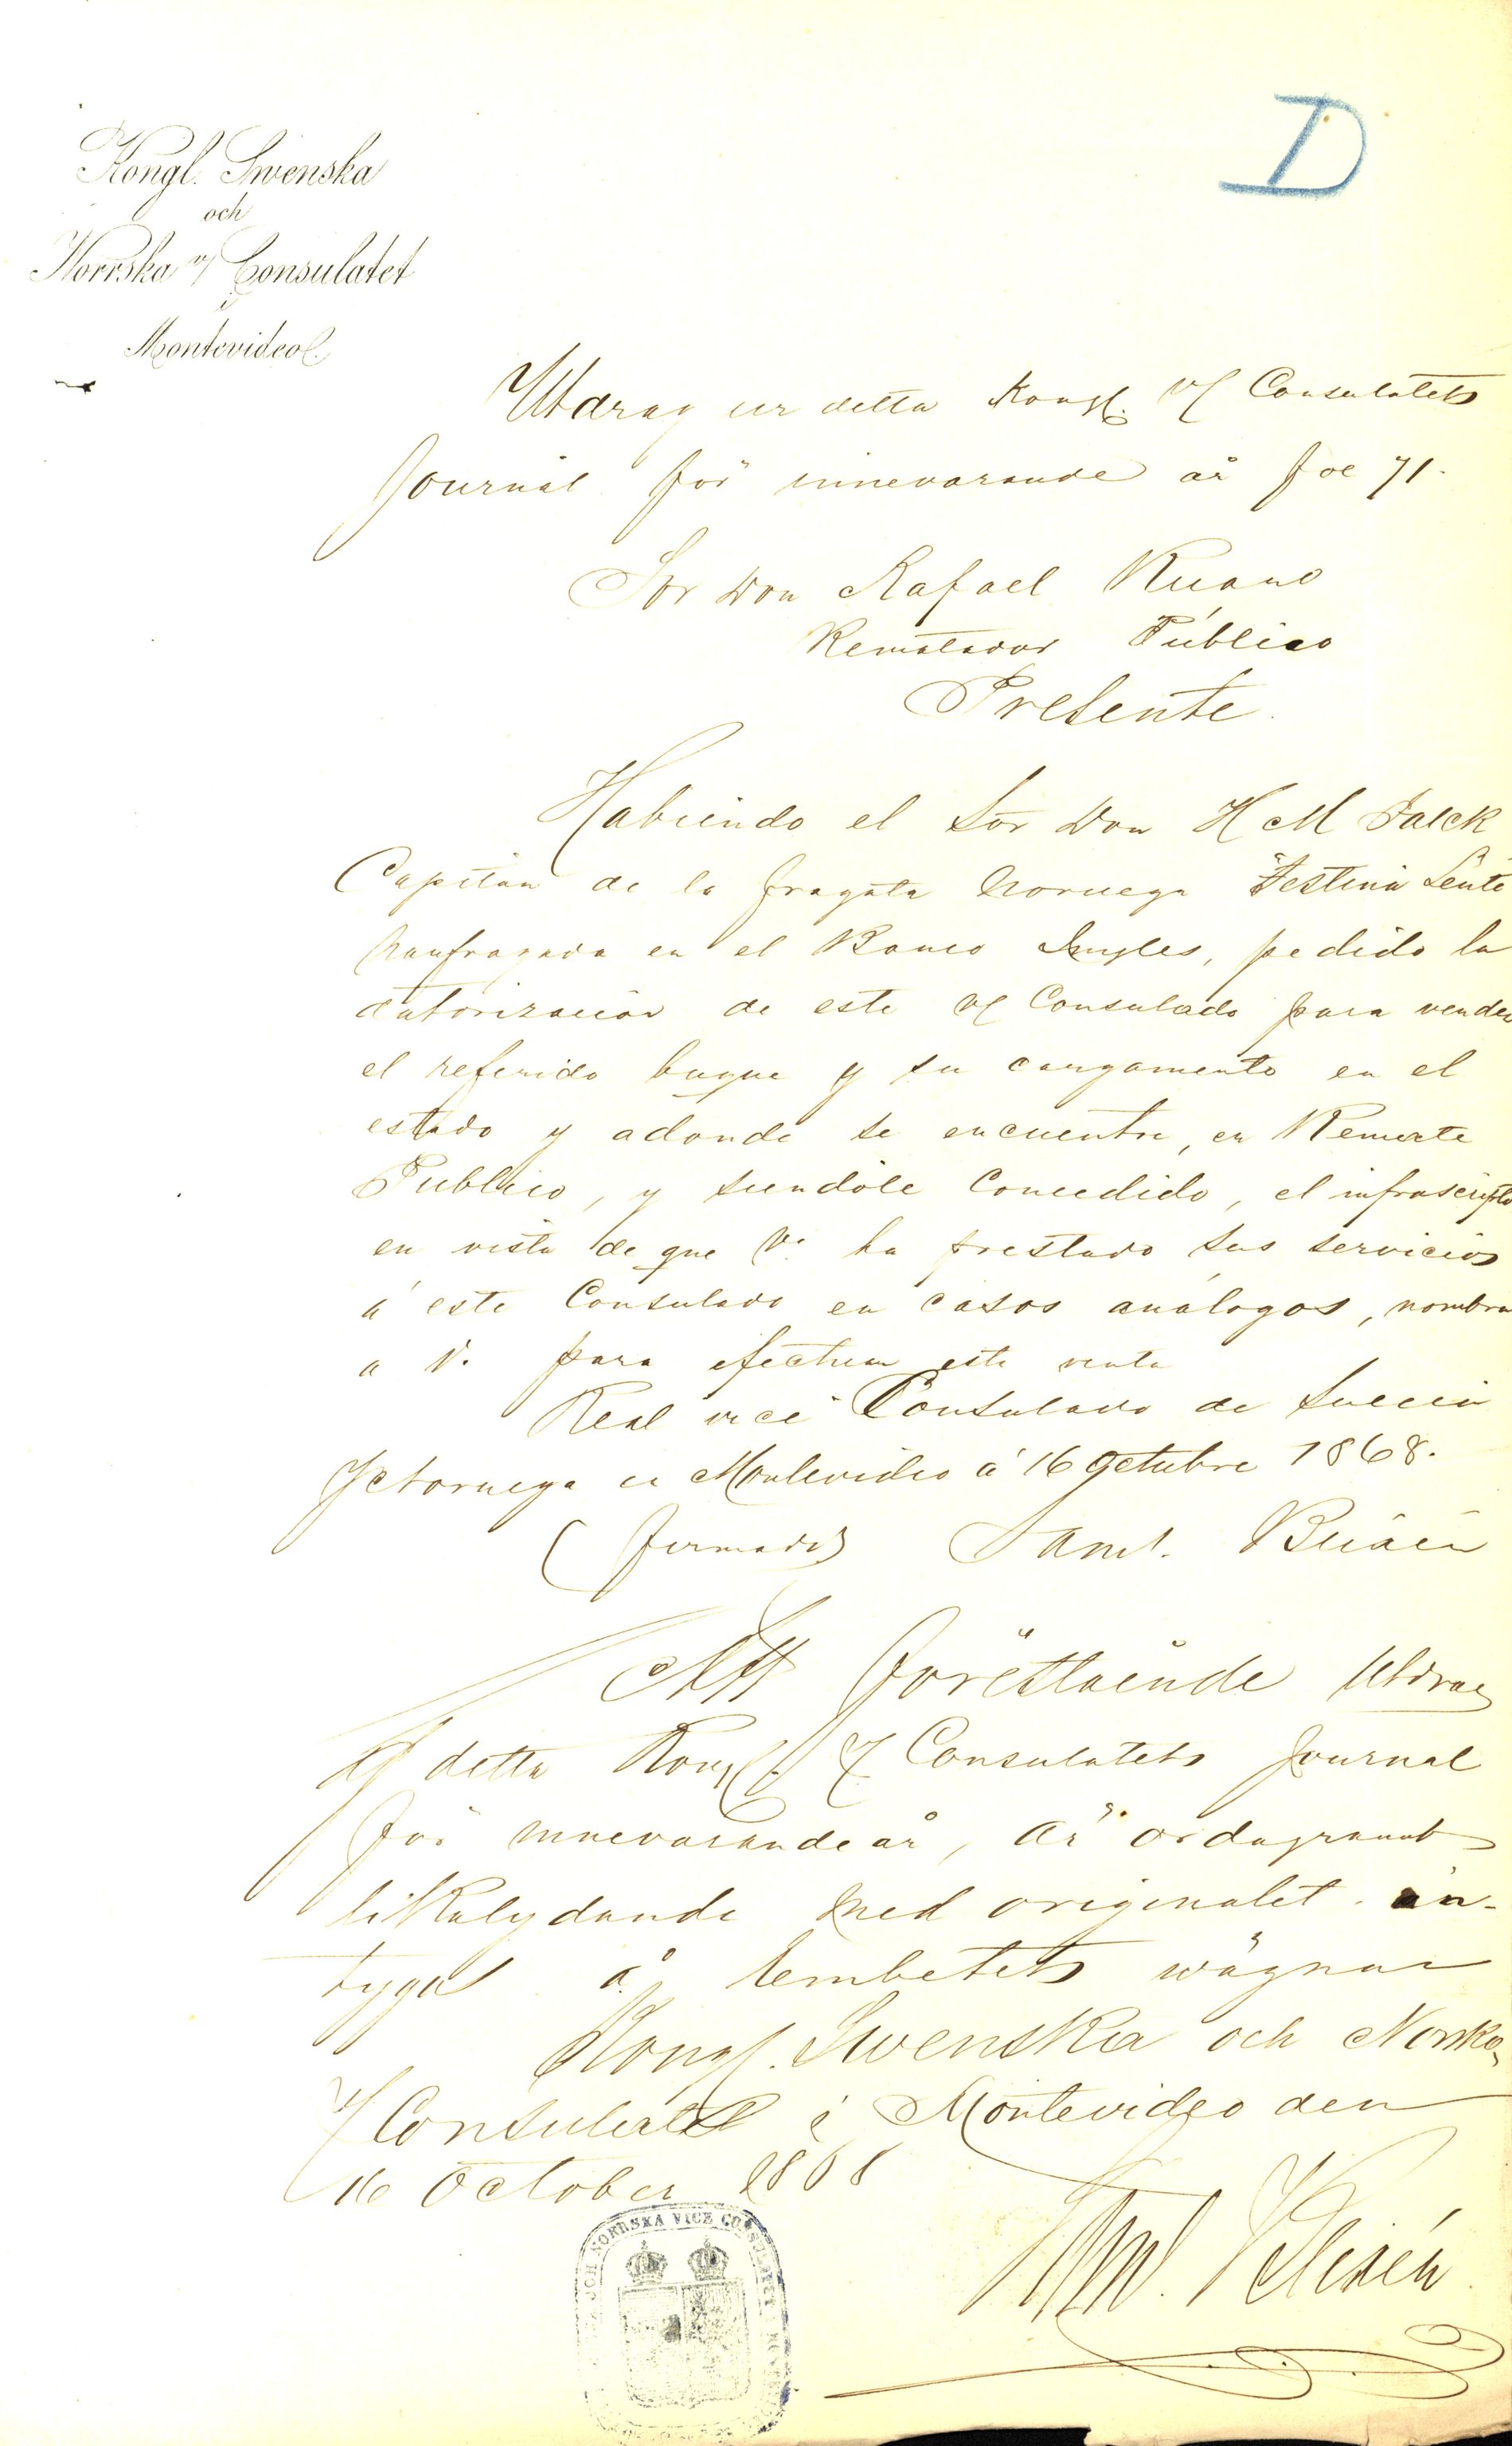 D
Kongl. Swenska
och
Norrska v/ Consulatet
i
Montevideo.
Utdrag ur detta Kongl. v/ Consulatets
Journal för innevarande år fol 71.
Sor Don Rafael Ruano
Rematador Público
Presente.
Habiendo el Sor Don H M Falck
Capitan de la fragata Noruega Festina Lente
Naufragada en el Banco Ingles, pedido la
autorizacion de este v/ Consulado para vender
el referido buque y su cargamento en el
estado y adonde se encuentre, en Remate
Publico, y siendole Concedido, el infrascripto
en vista de que V. ha prestado sus servicios
á este Consulado en casos análogos, nombra
a V. para efectuar esta venta
Real vice Consulado de Suecia
y Noruega en Montevideo á 16 Octubre 1868.
(firmado) Saml.
Att förestående Utdrag
af detta Kongl. v/ Consulatets Journal
för innevarande år, är ordagrannt
likalydande med originalet. in-
tygas å Embetets wägnar
Kongl. Swenska och Norska
v/ Consulatet i Montevideo den
16 October 1868
OCH NORRSKA VICE CONSULATET